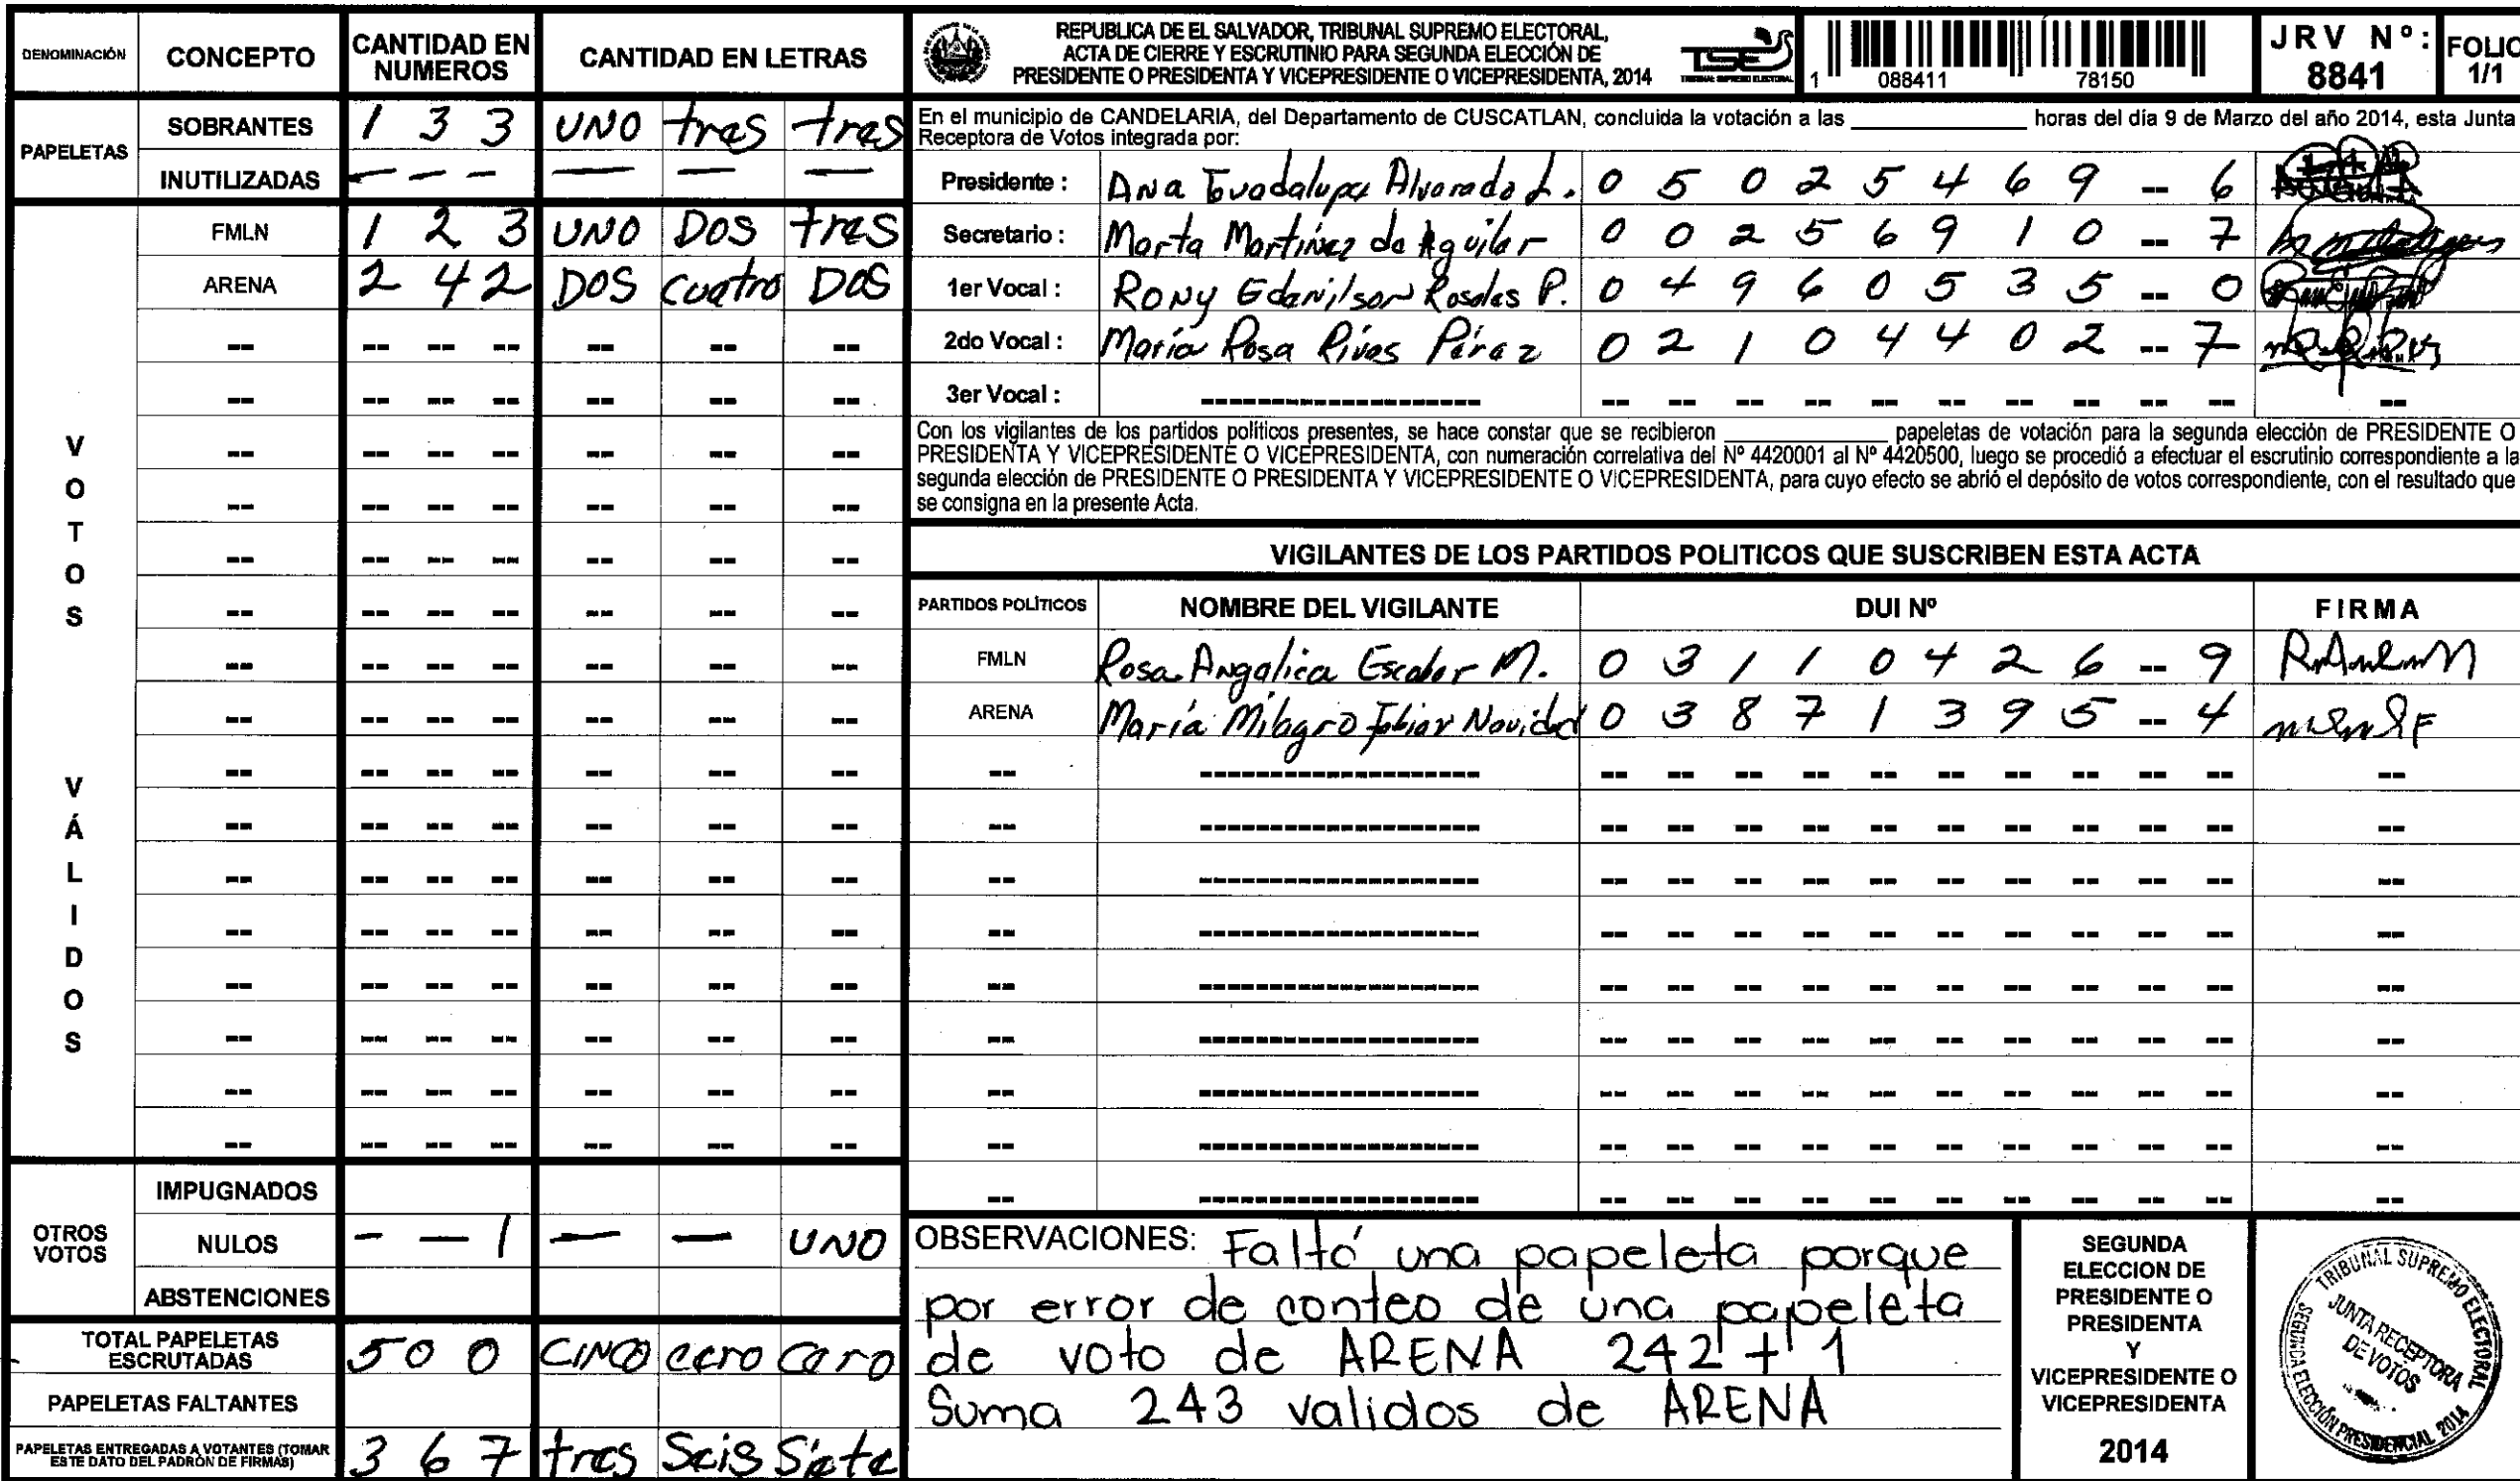 DENOMINACIÓN CONCEPTO CANTIDAD EN NUMEROS CANTIDAD EN LETRAS
PAPELETAS
SOBRANTES 1 3 3 UNO tres tres
INUTILIZADAS - - - — — —
VOTOS VÁLIDOS
FMLN 1 2 3 UNO DOS tres
ARENA 2 4 2 DOS cuatro DOS
OTROS VOTOS
IMPUGNADOS
NULOS - — 1 — — UNO
ABSTENCIONES
TOTAL PAPELETAS ESCRUTADAS 5 0 0 CINCO cero cero
PAPELETAS FALTANTES
PAPELETAS ENTREGADAS A VOTANTES (TOMAR ESTE DATO DEL PADRÓN DE FIRMAS) 3 6 7 tres Seis Siete
REPUBLICA DE EL SALVADOR, TRIBUNAL SUPREMO ELECTORAL,
ACTA DE CIERRE Y ESCRUTINIO PARA SEGUNDA ELECCIÓN DE
PRESIDENTE O PRESIDENTA Y VICEPRESIDENTE O VICEPRESIDENTA, 2014
TSE
TRIBUNAL SUPREMO ELECTORAL
1 088411 78150
JRV Nº: 8841
FOLIO 1/1
En el municipio de CANDELARIA, del Departamento de CUSCATLAN, concluida la votación a las ____ horas del día 9 de Marzo del año 2014, esta Junta
Receptora de Votos integrada por:
Presidente : Ana Guadalupe Alvarado L. 0 5 0 2 5 4 6 9 -- 6
Secretario : Marta Martínez de Aguilar 0 0 2 5 6 9 1 0 -- 7
1er Vocal : Rony Edenilson Rosales P. 0 4 9 6 0 5 3 5 -- 0
2do Vocal : María Rosa Rivas Pérez 0 2 1 0 4 4 0 2 -- 7
3er Vocal :
Con los vigilantes de los partidos políticos presentes, se hace constar que se recibieron ____ papeletas de votación para la segunda elección de PRESIDENTE O
PRESIDENTA Y VICEPRESIDENTE O VICEPRESIDENTA, con numeración correlativa del Nº 4420001 al Nº 4420500, luego se procedió a efectuar el escrutinio correspondiente a la
segunda elección de PRESIDENTE O PRESIDENTA Y VICEPRESIDENTE O VICEPRESIDENTA, para cuyo efecto se abrió el depósito de votos correspondiente, con el resultado que
se consigna en la presente Acta.
VIGILANTES DE LOS PARTIDOS POLITICOS QUE SUSCRIBEN ESTA ACTA
PARTIDOS POLÍTICOS NOMBRE DEL VIGILANTE DUI Nº FIRMA
FMLN Rosa Angelica Escobar M. 0 3 1 1 0 4 2 6 -- 9
ARENA María Milagro Navidad 0 3 8 7 1 3 9 5 -- 4
OBSERVACIONES: Faltó una papeleta porque
por error de conteo de una papeleta
de voto de ARENA 242 + 1
Suma 243 validos de ARENA
SEGUNDA
ELECCION DE
PRESIDENTE O
PRESIDENTA
Y
VICEPRESIDENTE O
VICEPRESIDENTA
2014
TRIBUNAL SUPREMO ELECTORAL
JUNTA RECEPTORA
DE VOTOS
SEGUNDA ELECCIÓN PRESIDENCIAL 2014